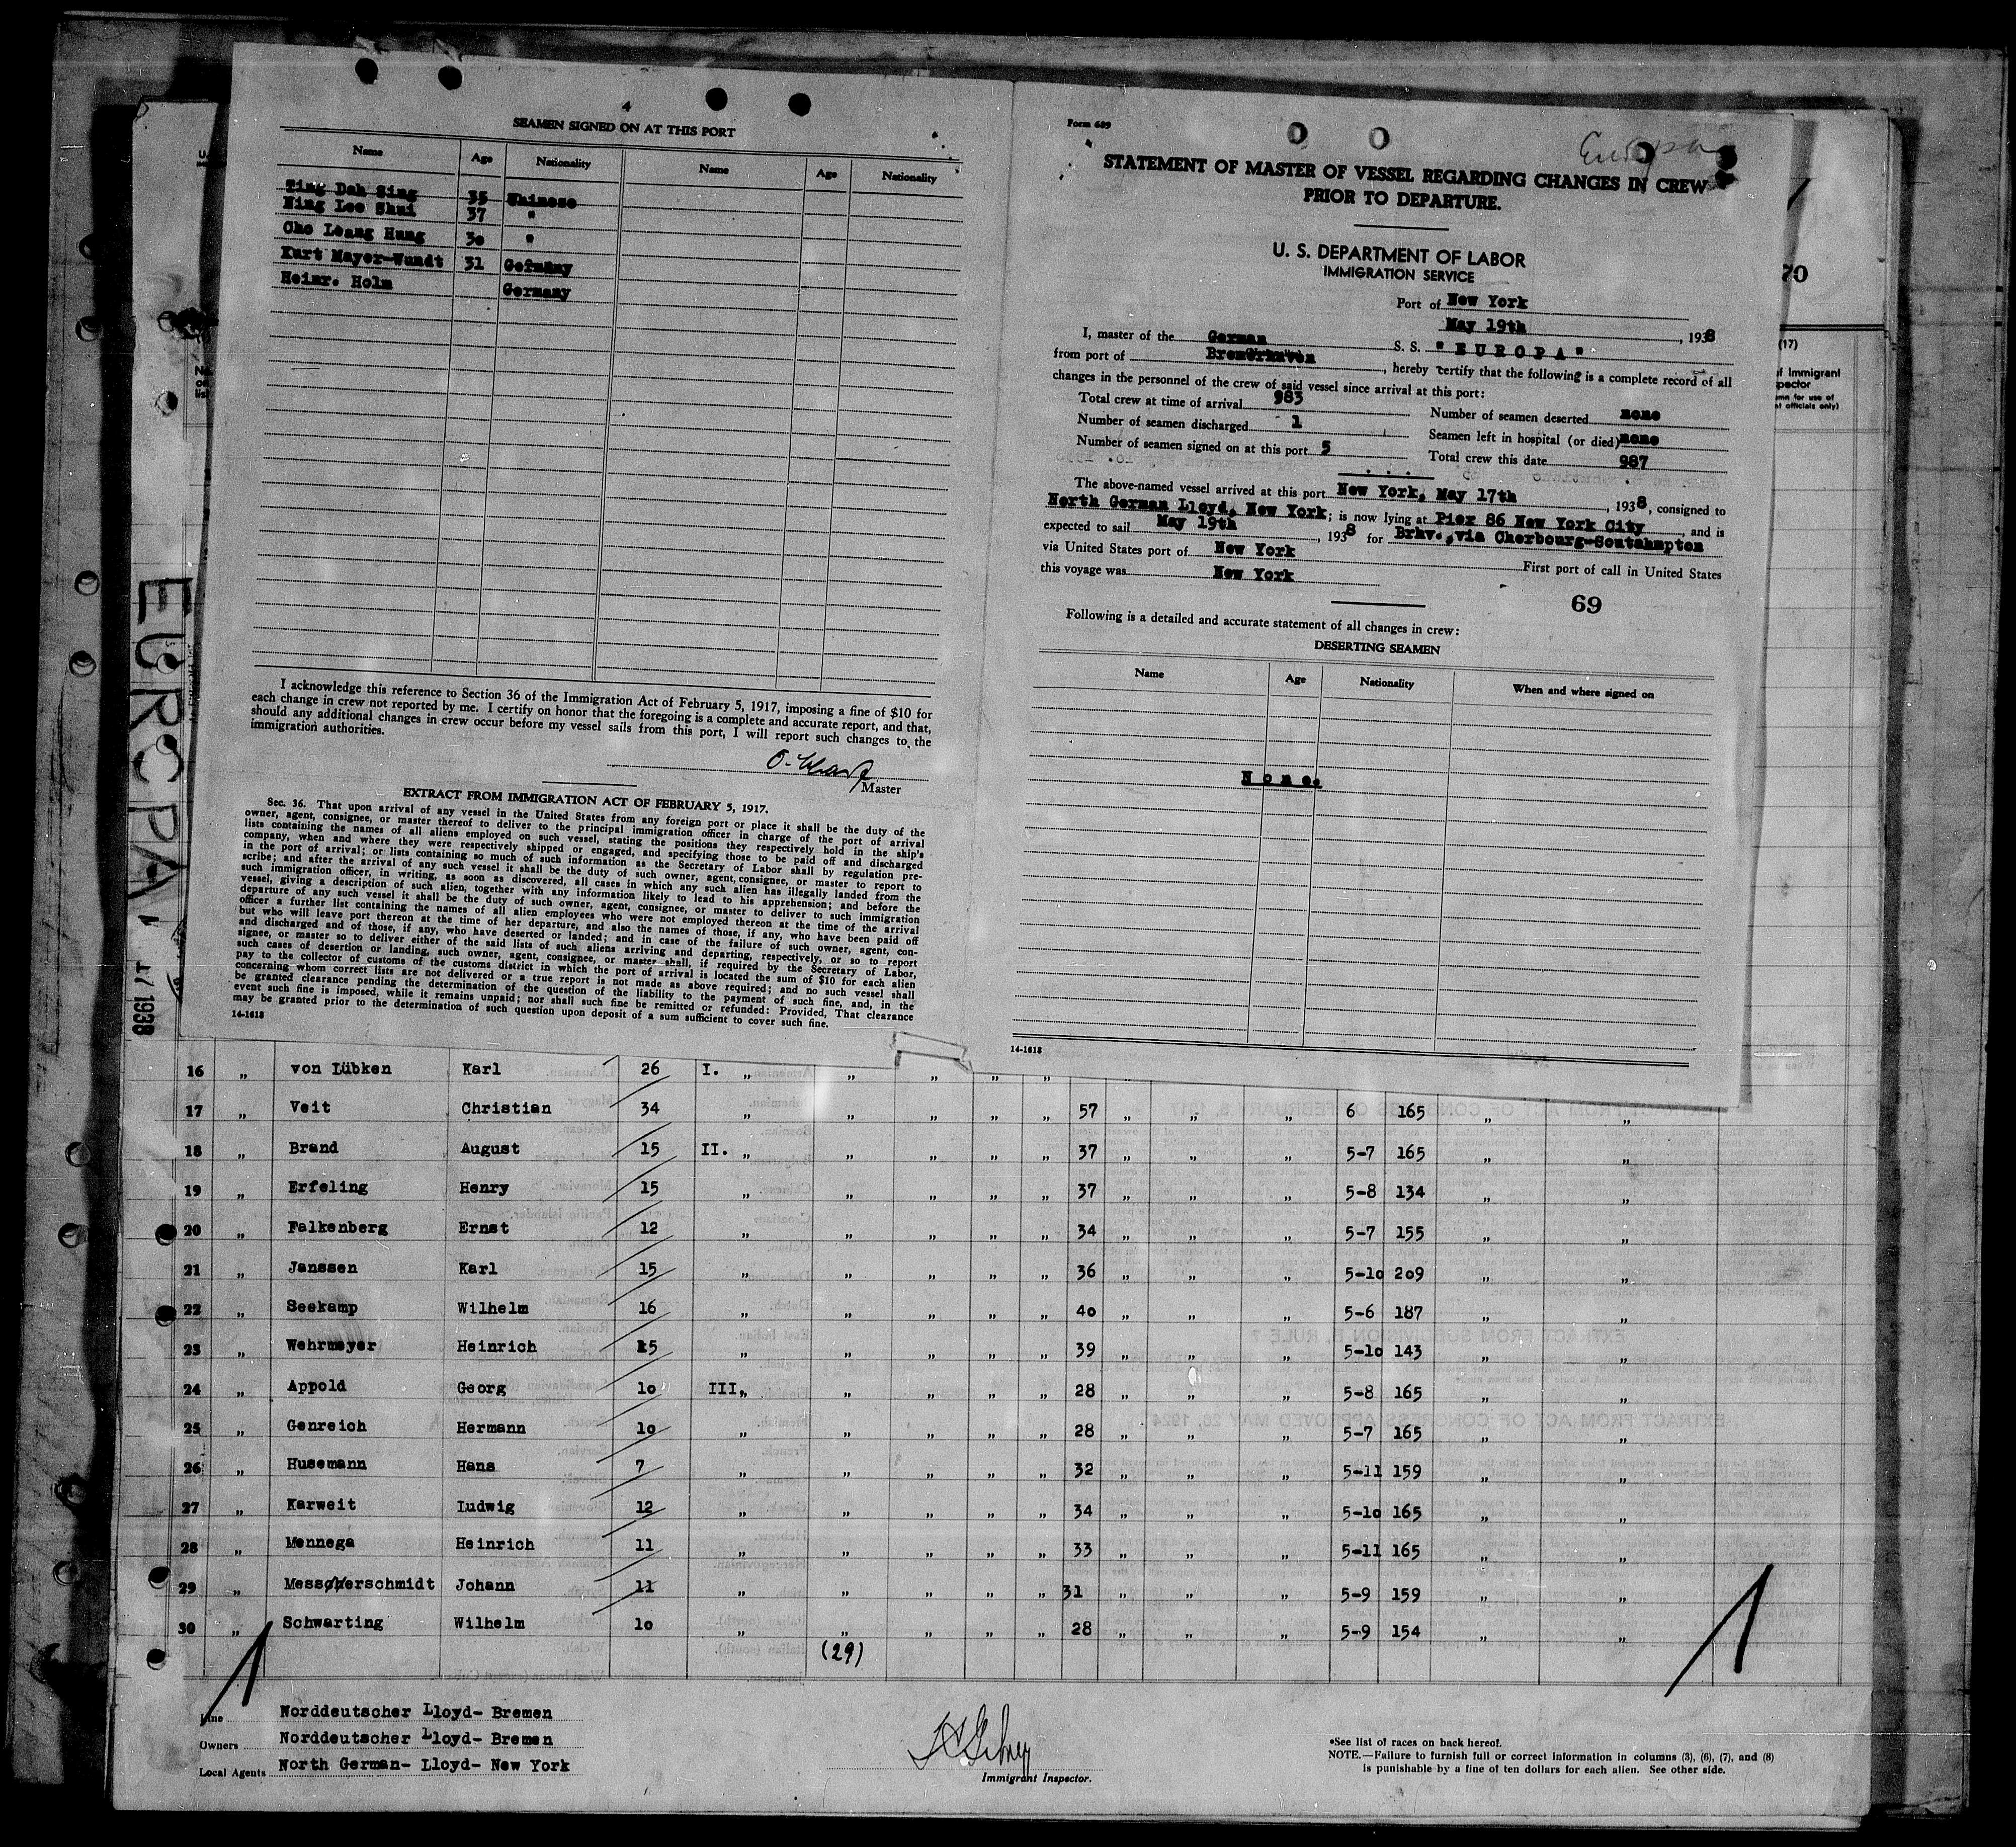 4
SEAMEN SIGNED ON AT THIS PORT
Name Age Nationality Name Age Nationality
Ting Dah Sing 35 Chinese
Ning Lee Shui 37 "
Cho Leang Hung 30 "
Kurt Mayer-Wundt 31 Germany
Heinr. Holm Germany
I acknowledge this reference to Section 36 of the Immigration Act of February 5, 1917, imposing a fine of $10 for
each change in crew not reported by me. I certify on honor that the foregoing is a complete and accurate report, and that,
should any additional changes in crew occur before my vessel sails from this port, I will report such changes to the
immigration authorities.
Master
EXTRACT FROM IMMIGRATION ACT OF FEBRUARY 5, 1917.
Sec. 36. That upon arrival of any vessel in the United States from any foreign port or place it shall be the duty of the
owner, agent, consignee, or master thereof to deliver to the principal immigration officer in charge of the port of arrival
lists containing the names of all aliens employed on such vessel, stating the positions they respectively hold in the ship's
company, when and where they were respectively shipped or engaged, and specifying those to be paid off and discharged
in the port of arrival; or lists containing so much of such information as the Secretary of Labor shall by regulation pre-
scribe; and after the arrival of any such vessel it shall be the duty of such owner, agent, consignee, or master to report to
such immigration officer, in writing, as soon as discovered, all cases in which any such alien has illegally landed from the
vessel, giving a description of such alien, together with any information likely to lead to his apprehension; and before the
departure of any such vessel it shall be the duty of such owner, agent, consignee, or master to deliver to such immigration
officer a further list containing the names of all alien employees who were not employed thereon at the time of the arrival
but who will leave port thereon at the time of her departure, and also the names of those, if any, who have been paid off
and discharged and of those, if any, who have deserted or landed; and in case of the failure of such owner, agent, con-
signee, or master so to deliver either of the said lists of such aliens arriving and departing, respectively, or so to report
such cases of desertion or landing, such owner, agent, consignee, or master shall, if required by the Secretary of Labor,
pay to the collector of customs of the customs district in which the port of arrival is located the sum of $10 for each alien
concerning whom correct lists are not delivered or a true report is not made as above required; and no such vessel shall
be granted clearance pending the determination of the question of the liability to the payment of such fine, and, in the
event such fine is imposed, while it remains unpaid; nor shall such fine be remitted or refunded: Provided, That clearance
may be granted prior to the determination of such question upon deposit of a sum sufficient to cover such fine.
14-1618
Form 689
Europa
STATEMENT OF MASTER OF VESSEL REGARDING CHANGES IN CREW
PRIOR TO DEPARTURE.
U. S. DEPARTMENT OF LABOR
IMMIGRATION SERVICE
Port of New York
May 19th, 1938
I, master of the German S. S. "EUROPA"
from port of Bremerhaven, hereby certify that the following is a complete record of all
changes in the personnel of the crew of said vessel since arrival at this port:
Total crew at time of arrival 983 Number of seamen deserted none
Number of seamen discharged 1 Seamen left in hospital (or died) none
Number of seamen signed on at this port 5 Total crew this date 987
The above-named vessel arrived at this port New York, May 17th, 1938, consigned to
North German Lloyd, New York; is now lying at Pier 86 New York City, and is
expected to sail May 19th, 1938 for Brhv., via Cherbourg-Soutahmpton
via United States port of New York First port of call in United States
this voyage was New York
69
Following is a detailed and accurate statement of all changes in crew:
DESERTING SEAMEN
Name Age Nationality When and where signed on
None.
14-1618
70
(17)
EUROPA
17 1938
16 " von Lübken Karl 26 I. " " " " "
17 " Veit Christian 34 " " " " " 57 " " " 6 165 " "
18 " Brand August 15 II. " " " " " 37 " " " 5-7 165 " "
19 " Erfeling Henry 15 " " " " " 37 " " " 5-8 134 " "
20 " Falkenberg Ernst 12 " " " " " 34 " " " 5-7 155 " "
21 " Janssen Karl 15 " " " " " 36 " " " 5-10 209 " "
22 " Seekamp Wilhelm 16 " " " " " 40 " " " 5-6 187 " "
23 " Wehrmeyer Heinrich 15 " " " " " 39 " " " 5-10 143 " "
24 " Appold Georg 10 III" " " " " 28 " " " 5-8 165 " "
25 " Genreich Hermann 10 " " " " " 28 " " " 5-7 165 " "
26 " Husemann Hans 7 " " " " " 32 " " " 5-11 159 " "
27 " Karweit Ludwig 12 " " " " " 34 " " " 5-10 165 " "
28 " Mennega Heinrich 11 " " " " " 33 " " " 5-11 165 " "
29 " Messerschmidt Johann 11 " " " " " 31 " " " 5-9 159 " "
30 " Schwarting Wilhelm 10 " " " " " 28 " " " 5-9 154 " "
(29)
Line Norddeutscher Lloyd- Bremen
Owners Norddeutscher Lloyd- Bremen
Local Agents North German- Lloyd- New York
Immigrant Inspector.
*See list of races on back hereof.
NOTE.—Failure to furnish full or correct information in columns (3), (6), (7), and (8)
is punishable by a fine of ten dollars for each alien. See other side.